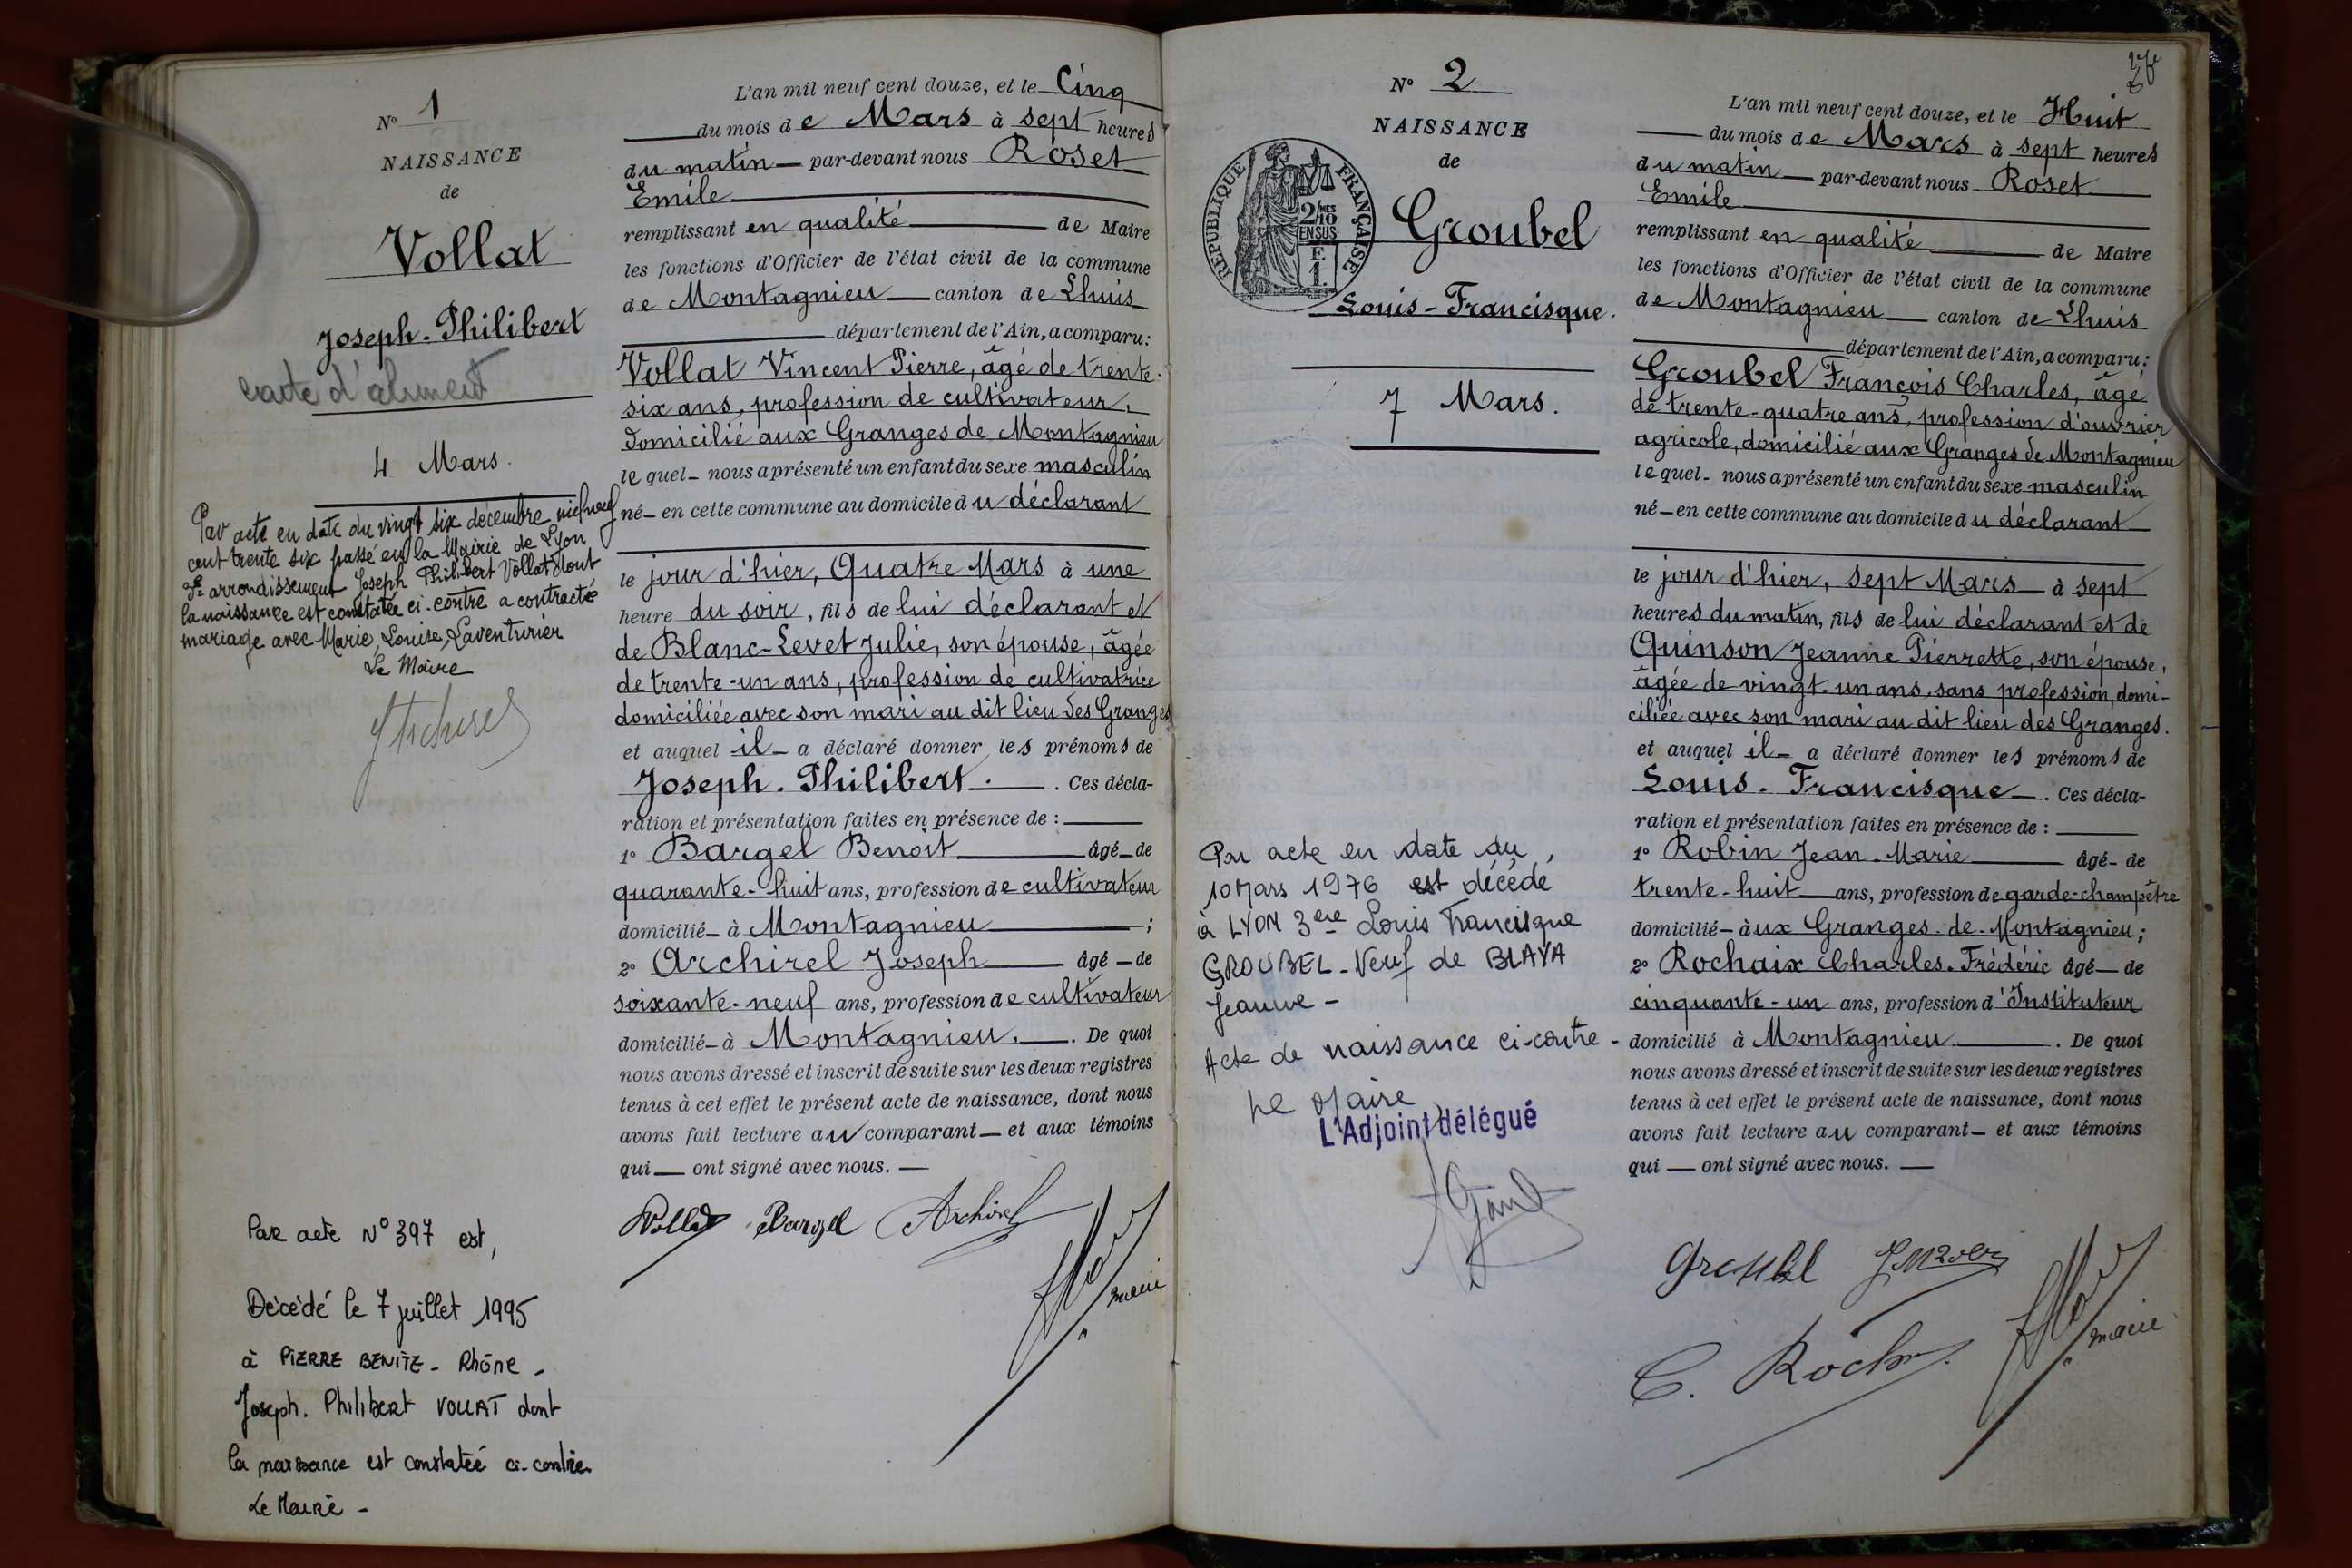 N° 1
NAISSANCE
de
Vollat
Joseph-Philibert
carte d'aliment
4 Mars.
Par acte en date du vingt six décembre mil neuf
cent trente six passé en la Mairie de Lyon
arrondissement Joseph Philibert Vollat dont
la naissance est constatée ci-contre a contracté
mariage avec Marie, Louise, Laventurier
Le Maire
Par acte N° 397 est,
Décédé le 7 juillet 1995
à PIERRE BENITE - Rhône -
Joseph. Philibert VOLLAT dont
la naissance est constatée ci-contre
Le Maire -
L'an mil neuf cent douze, et le Cinq
du mois de Mars à sept heures
du matin par-devant nous Roset
Emile
remplissant en qualité de Maire
les fonctions d'Officier de l'état civil de la commune
de Montagnieu canton de Lhuis
département de l'Ain, a comparu:
Vollat Vincent Pierre, âgé de trente-
six ans, profession de cultivateur,
domicilié aux Granges de Montagnieu
lequel nous a présenté un enfant du sexe masculin
né en cette commune au domicile du déclarant
le jour d'hier, Quatre Mars à une
heure du soir, fils de lui déclarant et
de Blanc-Levet Julie, son épouse, âgée
de trente-un ans, profession de cultivatrice
domiciliée avec son mari au dit lieu des Granges
et auquel il a déclaré donner les prénoms de
Joseph-Philibert. Ces décla-
ration et présentation faites en présence de :
1° Bargel Benoit âgé de
quarante-huit ans, profession de cultivateur
domicilié à Montagnieu ;
2° Archirel Joseph âgé de
soixante-neuf ans, profession de cultivateur
domicilié à Montagnieu. De quoi
nous avons dressé et inscrit de suite sur les deux registres
tenus à cet effet le présent acte de naissance, dont nous
avons fait lecture au comparant et aux témoins
qui ont signé avec nous.
Vollat Bargel Archirel
maire
N° 2
NAISSANCE
de
RÉPUBLIQUE FRANÇAISE
2/10 MES
EN SUS
F.
1.
Groubel
Louis-Francisque.
7 Mars.
Par acte en date du
10 Mars 1976 est décédé
à LYON 3ere Louis Francisque
GROUBEL - Veuf de BLAYA
Jeanne -
Acte de naissance ci-contre -
Le Maire
L'Adjoint délégué
L'an mil neuf cent douze, et le Huit
du mois de Mars à sept heures
du matin par-devant nous Roset
Emile
remplissant en qualité de Maire
les fonctions d'Officier de l'état civil de la commune
de Montagnieu canton de Lhuis
département de l'Ain, a comparu:
Groubel François Charles, âgé
de trente-quatre ans, profession d'ouvrier
agricole, domicilié aux Granges de Montagnieu
lequel nous a présenté un enfant du sexe masculin
né en cette commune au domicile du déclarant
le jour d'hier, sept Mars à sept
heures du matin, fils de lui déclarant et de
Quinson Jeanne Pierrette, son épouse,
âgée de vingt-un ans, sans profession, domi-
ciliée avec son mari au dit lieu des Granges.
et auquel il a déclaré donner les prénoms de
Louis-Francisque. Ces décla-
ration et présentation faites en présence de :
1° Robin Jean-Marie âgé de
trente-huit ans, profession de garde-champêtre
domicilié aux Granges de Montagnieu;
2° Rochaix Charles-Frédéric âgé de
cinquante-un ans, profession d'Instituteur
domicilié à Montagnieu. De quoi
nous avons dressé et inscrit de suite sur les deux registres
tenus à cet effet le présent acte de naissance, dont nous
avons fait lecture au comparant et aux témoins
qui ont signé avec nous.
Groubel
maire